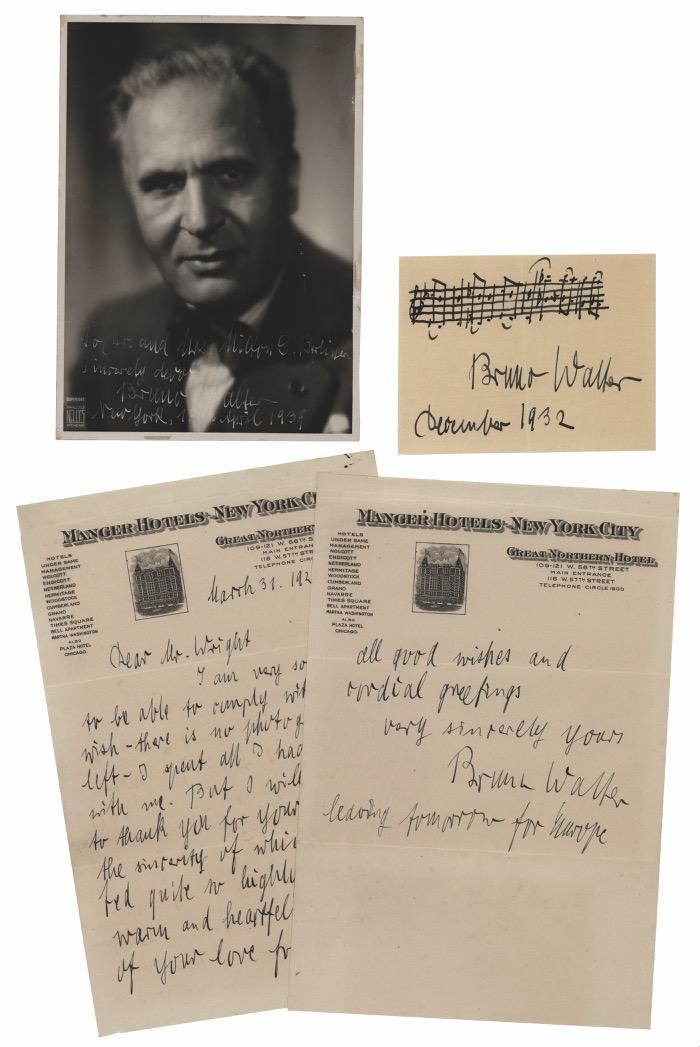 To Mr and Mrs Milton
sincerely
Bruno Walter
New York, April 1939
COPYRIGHT
NELLY'S
Bruno Walter
December 1932
MANGER HOTELS NEW YORK
HOTELS
UNDER SAME
MANAGEMENT
WOLCOTT
ENDICOTT
NETHERLAND
HERMITAGE
WOODSTOCK
CUMBERLAND
GRAND
NAVARRE
TIMES SQUARE
BELL APARTMENT
MARTHA WASHINGTON
ALSO
PLAZA HOTEL
CHICAGO.
GREAT NORTHERN
109-121 W. 56TH STREET
MAIN ENTRANCE
118 W. 57TH STREET
TELEPHONE
March 31. 192
Dear Mr. Wright
I am very
to be able to comply
wish - there is no
left - I spent all I had
with me. But I will
to thank you for your
the sincerity of
quite so highly
warm and
of your love
MANGER HOTELS NEW YORK CITY
HOTELS
UNDER SAME
MANAGEMENT
WOLCOTT
ENDICOTT
NETHERLAND
HERMITAGE
WOODSTOCK
CUMBERLAND
GRAND
NAVARRE
TIMES SQUARE
BELL APARTMENT
MARTHA WASHINGTON
ALSO
PLAZA HOTEL
CHICAGO.
GREAT NORTHERN HOTEL
109-121 W. 56TH STREET
MAIN ENTRANCE
118 W. 57TH STREET
TELEPHONE CIRCLE 1900
all good wishes and
cordial greetings
very sincerely yours
Bruno Walter
leaving tomorrow for Europe